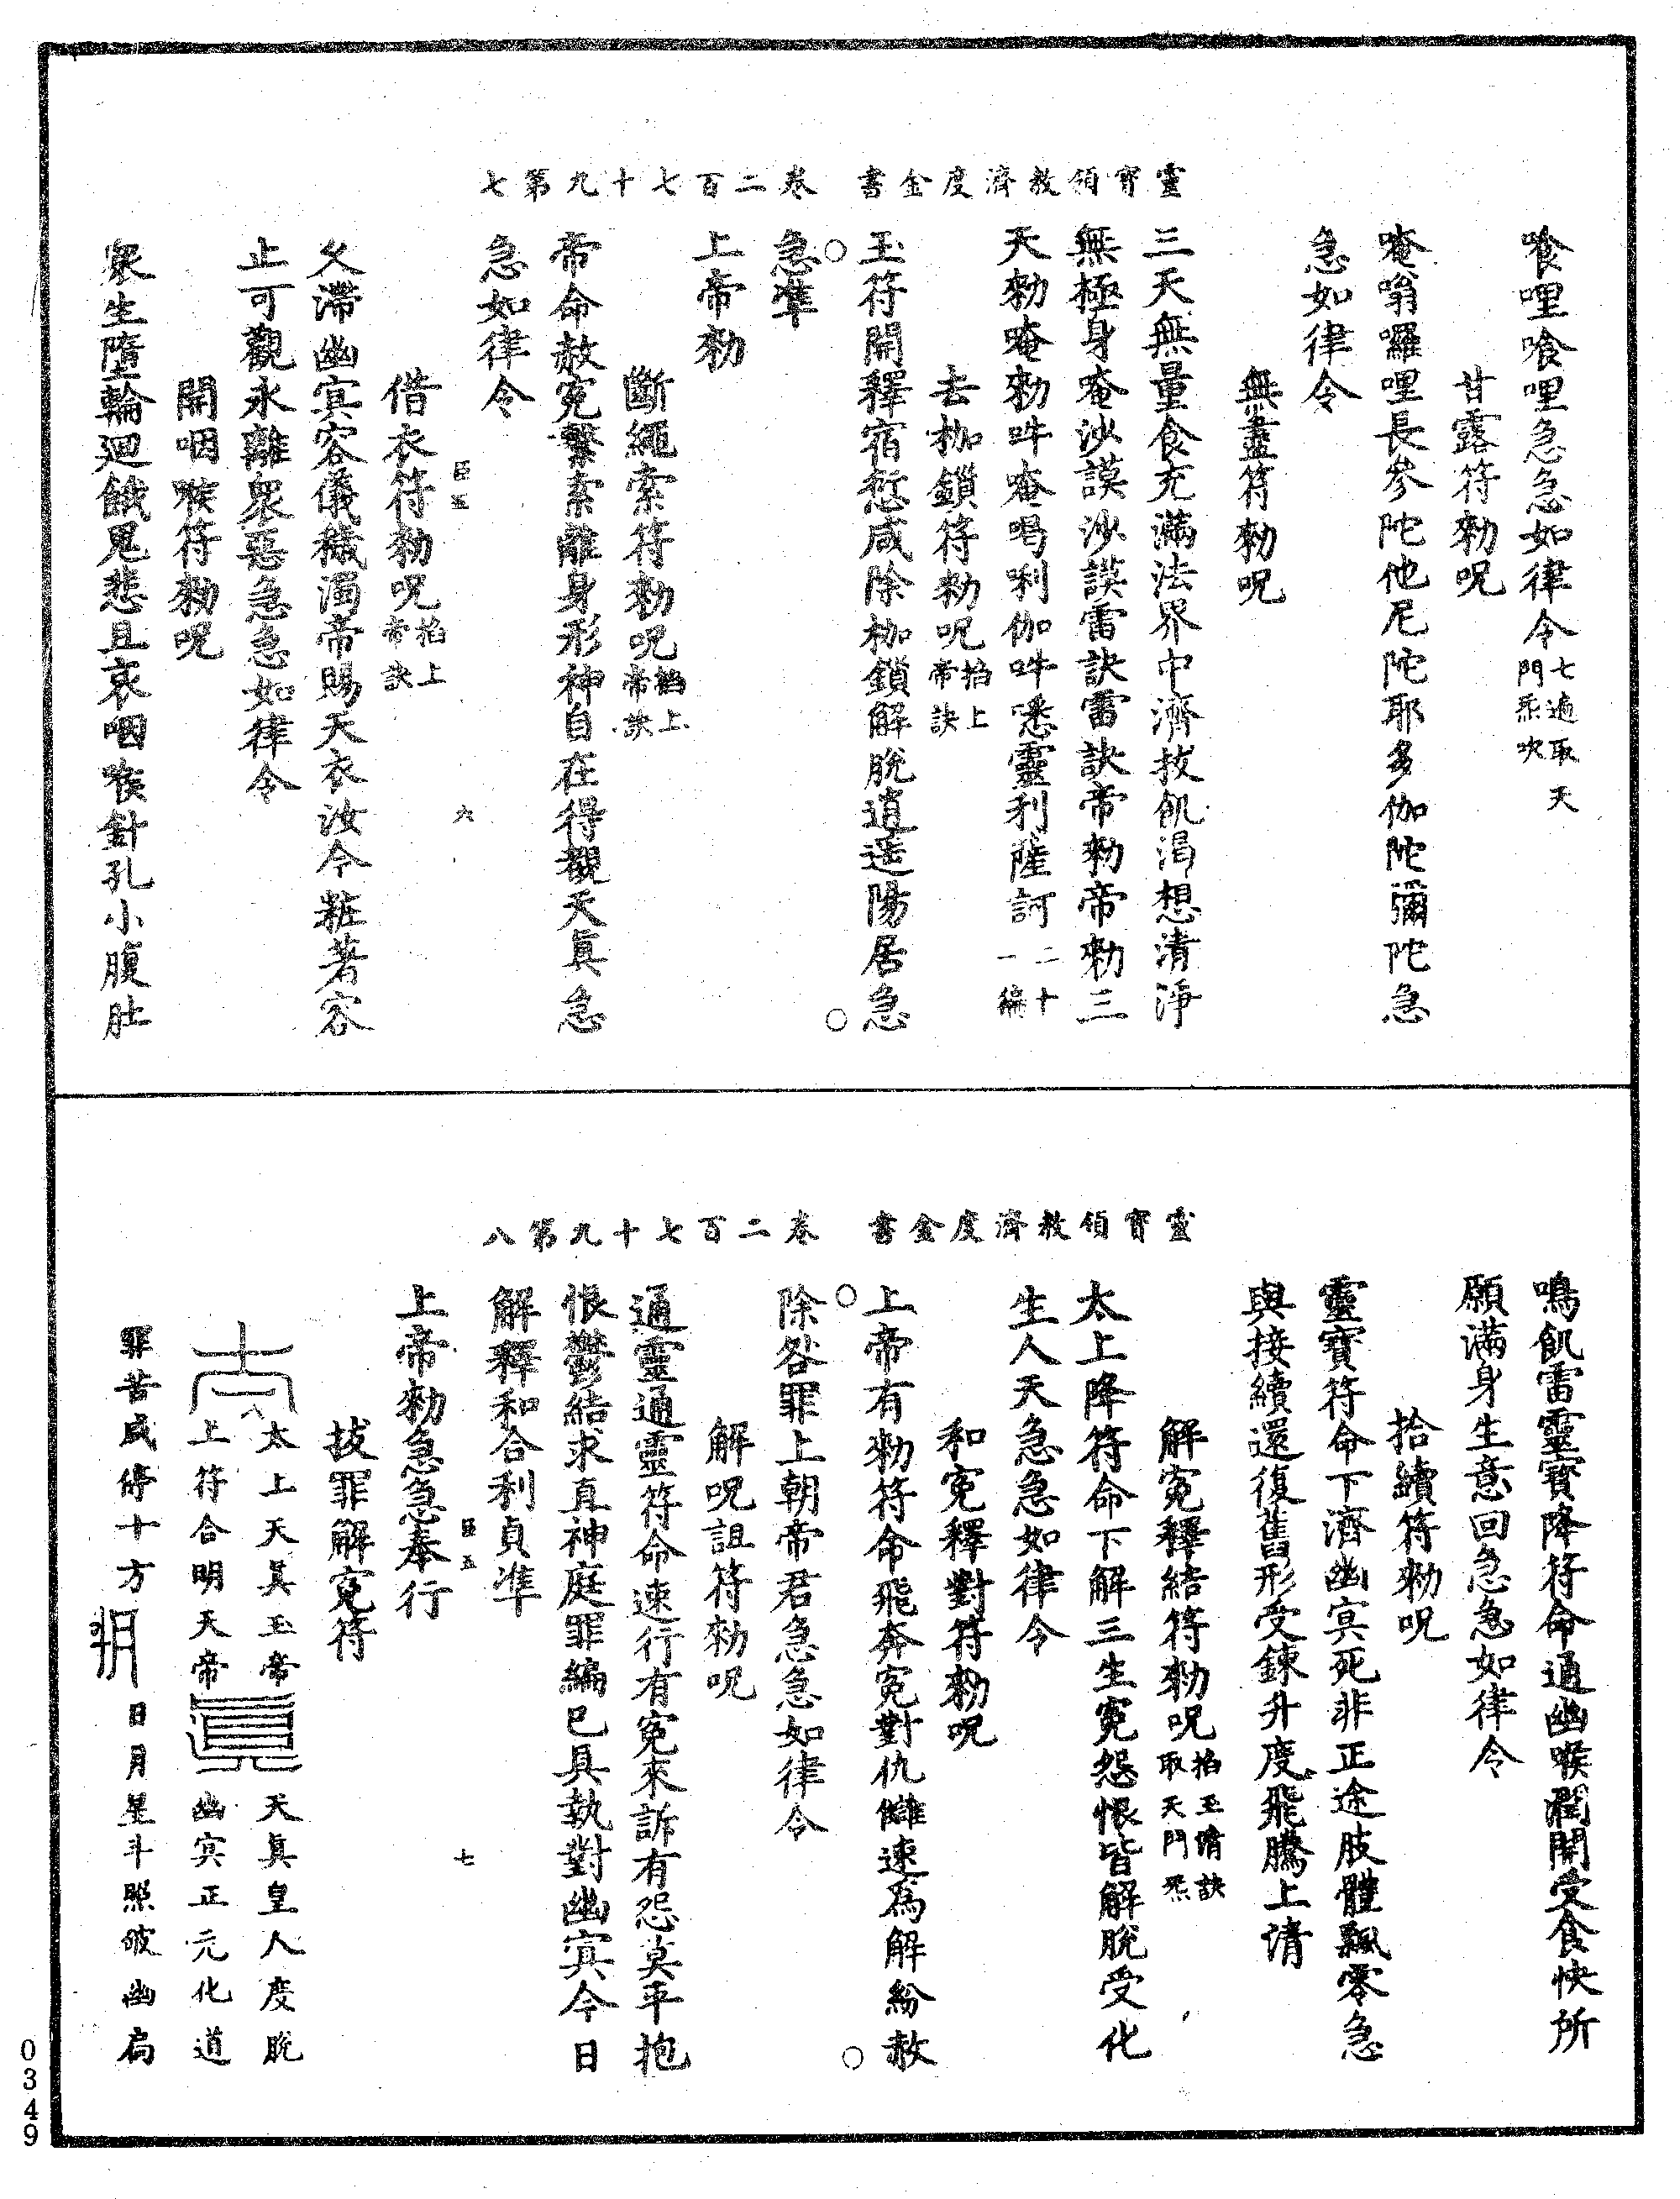 靈寶領教濟度金書　卷二百七十九第七
喰哩喰哩急急如律令七遍取天門炁吹
甘露符勑呪
唵嗡囉哩長參陀他尼陀耶多伽陀彌陀急
急如律令
無盡符勑呪
三天無量食充滿法界中濟拔飢渴想清淨
無極身唵沙謨沙謨雷訣雷訣帝勑帝勑三
天勑唵勑吽唵喝唎伽吽㗭靈利薩訶二十一編
去枷鎖符勑呪掐上帝訣
玉符開釋宿愆咸除枷鎖解脫逍遥陽居急
急準
上帝勑
斷繩索符勑呪掐上帝訣
帝命赦寃繫索離身形神自在得覩天真急
急如律令
臣五　六
借衣符勑呪掐上帝訣
久滯幽冥容儀穢濁帝賜天衣汝今粧著容
止可觀永離衆惡急急如律令
開咽喉符勑呪
衆生墮輪迴餓鬼悲且哀咽喉針孔小腹肚
靈寶領教濟度金書　卷二百七十九第八
鳴飢雷靈寶降符命通幽喉潤開受食快所
願滿身生意回急急如律令
拾續符勑呪
靈寶符命下濟幽冥死非正途肢體飄零急
與接續還復舊形受鍊升度飛騰上清
解寃釋結符勑呪掐玉清訣取天門炁
太上降符命下解三生寃怨恨皆解脫受化
生人天急急如律令
和寃釋對符勑呪
上帝有勑符命飛奔寃對仇讎速爲解紛赦
除咎罪上朝帝君急急如律令
解呪詛符勑呪
通靈通靈符命速行有寃來訴有怨莫平抱
恨鬱結求直神庭罪編已具執對幽冥今日
解釋和合利貞準
上帝勑急急奉行
臣五　七
拔罪解寃符
太上天真玉帝　天真皇人度脫
上符合明天帝　幽冥正元化道
罪苦咸停十方　日月星斗照破幽扃
0349